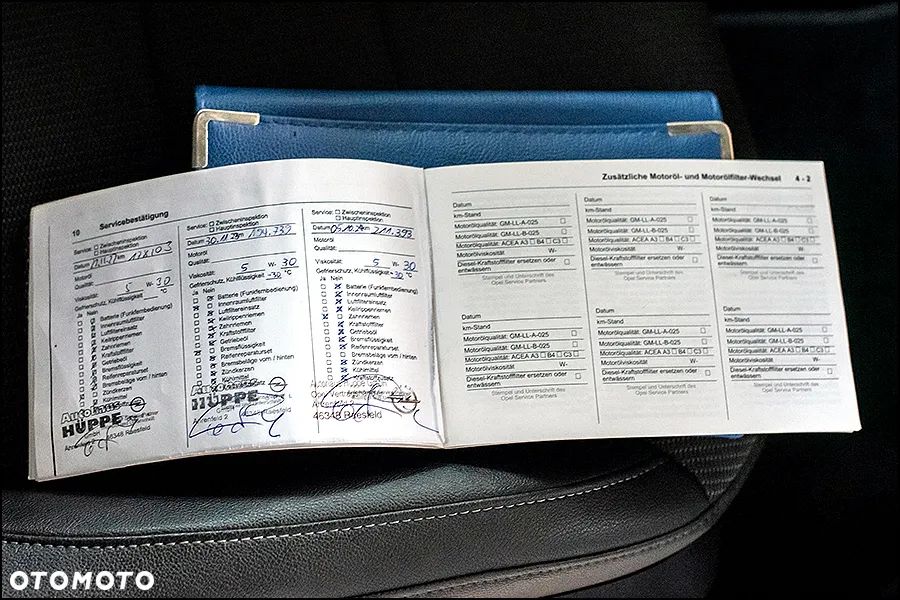 10 Servicebestätigung
Service: Zwischeninspektion
Hauptinspektion
Datum km
Motoröl
Qualität:
Viskosität: 5 W- 30
Gefrierschutz, Kühlflüssigkeit °C
Ja Nein
Batterie (Funkfernbedienung)
Innenraumluftfilter
Luftfiltereinsatz
Keilrippenriemen
Zahnriemen
Kraftstofffilter
Getriebeöl
Bremsflüssigkeit
Reifenreparaturset
Bremsbeläge vorn / hinten
Zündkerzen
Kühlmittel
Autohaus
HÜPPE
GmbH
Ahrenfeld 2 46348 Raesfeld
Service: Zwischeninspektion
Hauptinspektion
Datum km
Motoröl
Qualität:
Viskosität: 5 W- 30
Gefrierschutz, Kühlflüssigkeit -30 °C
Ja Nein
Batterie (Funkfernbedienung)
Innenraumluftfilter
Luftfiltereinsatz
Keilrippenriemen
Zahnriemen
Kraftstofffilter
Getriebeöl
Bremsflüssigkeit
Reifenreparaturset
Bremsbeläge vorn / hinten
Zündkerzen
Kühlmittel
Autohaus
HÜPPE
Ahrenfeld 2 Raesfeld
Service: Zwischeninspektion
Hauptinspektion
Datum km 211.393
Motoröl
Qualität:
Viskosität: 5 W- 30
Gefrierschutz, Kühlflüssigkeit -30 °C
Ja Nein
Batterie (Funkfernbedienung)
Innenraumluftfilter
Luftfiltereinsatz
Keilrippenriemen
Zahnriemen
Kraftstofffilter
Getriebeöl
Bremsflüssigkeit
Reifenreparaturset
Bremsbeläge vorn / hinten
Zündkerzen
Kühlmittel
46348 Raesfeld
Zusätzliche Motoröl- und Motorölfilter-Wechsel 4 - 2
Datum
km-Stand
Motorölqualität: GM-LL-A-025
Motorölqualität: GM-LL-B-025
Motorölqualität: ACEA A3 B4 C3
Motorölviskosität W-
Diesel-Kraftstofffilter ersetzen oder
entwässern
Stempel und Unterschrift des
Opel Service Partners
Datum
km-Stand
Motorölqualität: GM-LL-A-025
Motorölqualität: GM-LL-B-025
Motorölqualität: ACEA A3 B4 C3
Motorölviskosität W-
Diesel-Kraftstofffilter ersetzen oder
entwässern
Stempel und Unterschrift des
Opel Service Partners
Datum
km-Stand
Motorölqualität: GM-LL-A-025
Motorölqualität: GM-LL-B-025
Motorölqualität: ACEA A3 B4 C3
Motorölviskosität W-
Diesel-Kraftstofffilter ersetzen oder
entwässern
Stempel und Unterschrift des
Opel Service Partners
Datum
km-Stand
Motorölqualität: GM-LL-A-025
Motorölqualität: GM-LL-B-025
Motorölqualität: ACEA A3 B4 C3
Motorölviskosität W-
Diesel-Kraftstofffilter ersetzen oder
entwässern
Stempel und Unterschrift des
Opel Service Partners
Datum
km-Stand
Motorölqualität: GM-LL-A-025
Motorölqualität: GM-LL-B-025
Motorölqualität: ACEA A3 B4 C3
Motorölviskosität W-
Diesel-Kraftstofffilter ersetzen oder
entwässern
Stempel und Unterschrift des
Opel Service Partners
Datum
km-Stand
Motorölqualität: GM-LL-A-025
Motorölqualität: GM-LL-B-025
Motorölqualität: ACEA A3 B4 C3
Motorölviskosität W-
Diesel-Kraftstofffilter ersetzen oder
entwässern
Stempel und Unterschrift des
Opel Service Partners
OTOMOTO